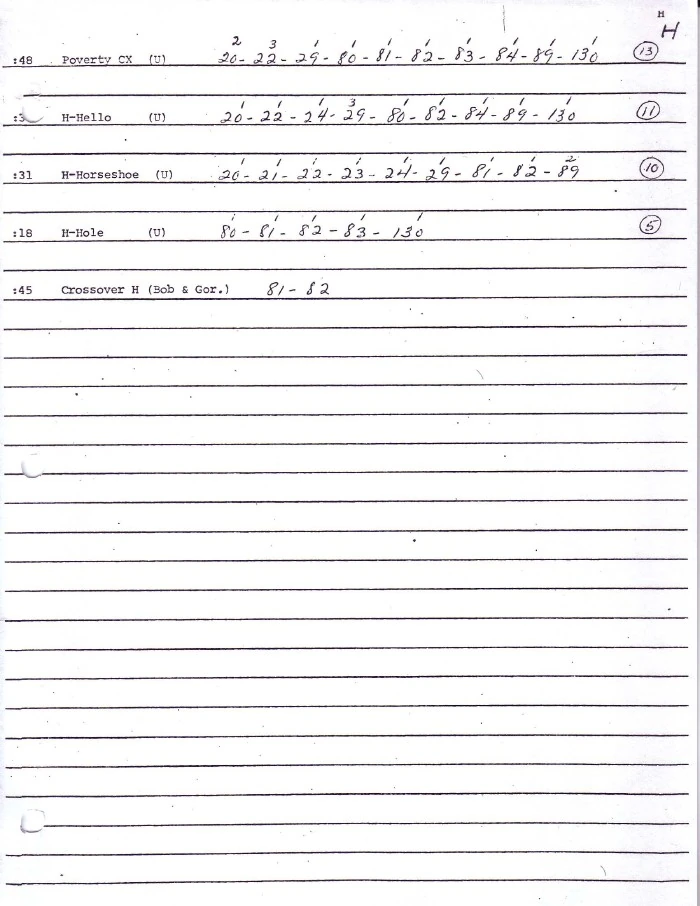 H
H
2 3 1 1 1 1 1 1 1 1
:48 Poverty CX (U) 20 - 22 - 29 - 80 - 81 - 82 - 83 - 84 - 89 - 130 13
1 1 1 3 1 1 1 1 1
H-Hello (U) 20 - 22 - 24 - 29 - 80 - 82 - 84 - 89 - 130 11
1 1 1 1 1 1 1 1 2
:31 H-Horseshoe (U) 20 - 21 - 22 - 23 - 24 - 29 - 81 - 82 - 89 10
1 1 1 1 1
:18 H-Hole (U) 80 - 81 - 82 - 83 - 130 5
:45 Crossover H (Bob & Gor.) 81 - 82